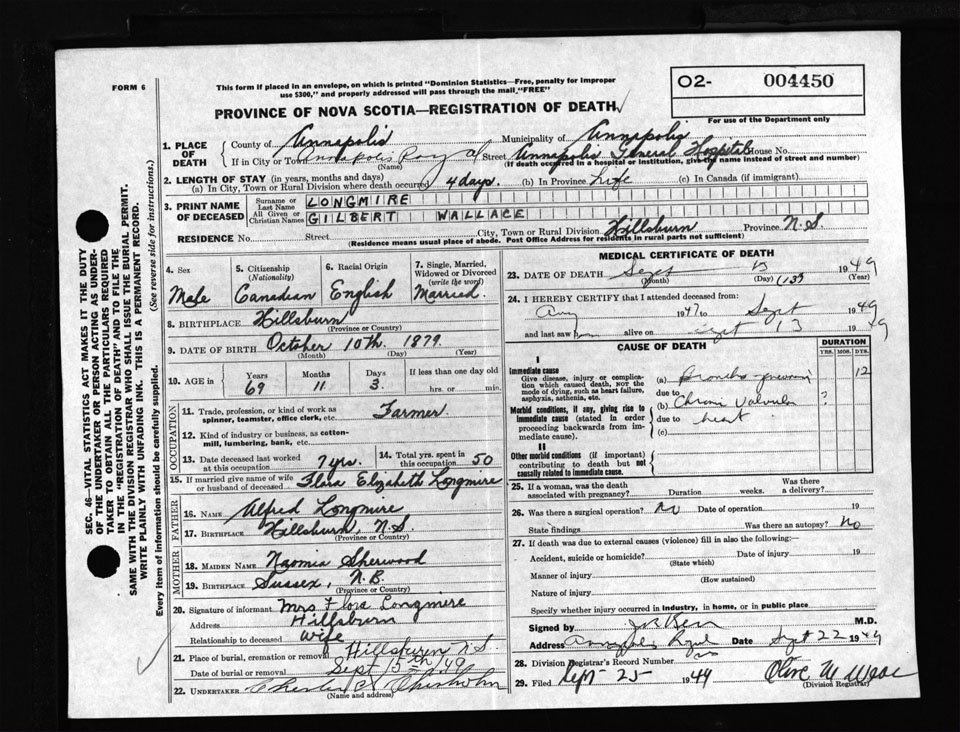 FORM 6
This form if placed in an envelope, on which is printed "Dominion Statistics—Free, penalty for improper
use $300," and properly addressed will pass through the mail "FREE"
O2- 004450
For use of the Department only
PROVINCE OF NOVA SCOTIA—REGISTRATION OF DEATH
1. PLACE OF DEATH
County of Annapolis Municipality of Annapolis
If in City or Town Annapolis Royal Street Annapolis General Hospital House No.
(Name) (If death occurred in a hospital or institution, give its name instead of street and number)
2. LENGTH OF STAY (in years, months and days)
(a) In City, Town or Rural Division where death occurred 4 days. (b) In Province Life (c) In Canada (if immigrant)
3. PRINT NAME OF DECEASED
Surname or Last Name LONGMIRE
All Given or Christian Names GILBERT WALLACE
RESIDENCE No. Street City, Town or Rural Division Hillsburn Province N.S.
(Residence means usual place of abode. Post Office Address for residents in rural parts not sufficient)
4. Sex
Male
5. Citizenship (Nationality)
Canadian
6. Racial Origin
English
7. Single, Married, Widowed or Divorced (write the word)
Married.
8. BIRTHPLACE Hillsburn
(Province or Country)
9. DATE OF BIRTH October 10th. 1879.
(Month) (Day) (Year)
10. AGE in Years Months Days If less than one day old
69 11 3. hrs. or min.
OCCUPATION
11. Trade, profession, or kind of work as spinner, teamster, office clerk, etc. Farmer.
12. Kind of industry or business, as cotton-mill, lumbering, bank, etc.
13. Date deceased last worked at this occupation 7 yrs.
14. Total yrs. spent in this occupation 50
15. If married give name of wife or husband of deceased Flora Elizabeth Longmire
FATHER
16. NAME Alfred Longmire
17. BIRTHPLACE Hillsburn, N.S.
(Province or Country)
MOTHER
18. MAIDEN NAME Naomia Sherwood
19. BIRTHPLACE Sussex, N.B.
(Province or Country)
20. Signature of informant Mrs Flora Longmire
Address Hillsburn
Relationship to deceased Wife
21. Place of burial, cremation or removal Hillsburn N.S.
Date of burial or removal Sept 15th/49
22. UNDERTAKER Chisholm
(Name and address)
MEDICAL CERTIFICATE OF DEATH
23. DATE OF DEATH Sept 13 1949
(Month) (Day) (Year)
24. I HEREBY CERTIFY that I attended deceased from:
Aug 1947 to Sept 1949
and last saw him alive on Sept 13 1949
CAUSE OF DEATH
DURATION
YRS. MOS. DYS.
I
Immediate cause
Give disease, injury or complication which caused death, NOT the mode of dying, such as heart failure, asphyxia, asthenia, etc.
(a) Broncho-pneumoni 12
due to
Morbid conditions, if any, giving rise to immediate cause (stated in order proceeding backwards from immediate cause).
(b) Chronic Valvular ?
due to heart
(c)
II
Other morbid conditions (if important) contributing to death but not causally related to immediate cause.
25. If a woman, was the death associated with pregnancy? Duration weeks. Was there a delivery?
26. Was there a surgical operation? No Date of operation 19
State findings Was there an autopsy? No
27. If death was due to external causes (violence) fill in also the following:—
Accident, suicide or homicide? Date of injury 19
(State which)
Manner of injury
(How sustained)
Nature of injury
Specify whether injury occurred in industry, in home, or in public place
Signed by Kerr M.D.
Address Annapolis Royal Date Sept 22 1949
28. Division Registrar's Record Number
29. Filed Sept- 25- 1949 Olive W
(Division Registrar)
SEC. 46—VITAL STATISTICS ACT MAKES IT THE DUTY
OF THE UNDERTAKER OR PERSON ACTING AS UNDER-
TAKER TO OBTAIN ALL THE PARTICULARS REQUIRED
IN THE "REGISTRATION OF DEATH" AND TO FILE THE
SAME WITH THE DIVISION REGISTRAR WHO SHALL ISSUE THE BURIAL PERMIT.
WRITE PLAINLY WITH UNFADING INK. THIS IS A PERMANENT RECORD.
Every item of information should be carefully supplied. (See reverse side for instructions.)